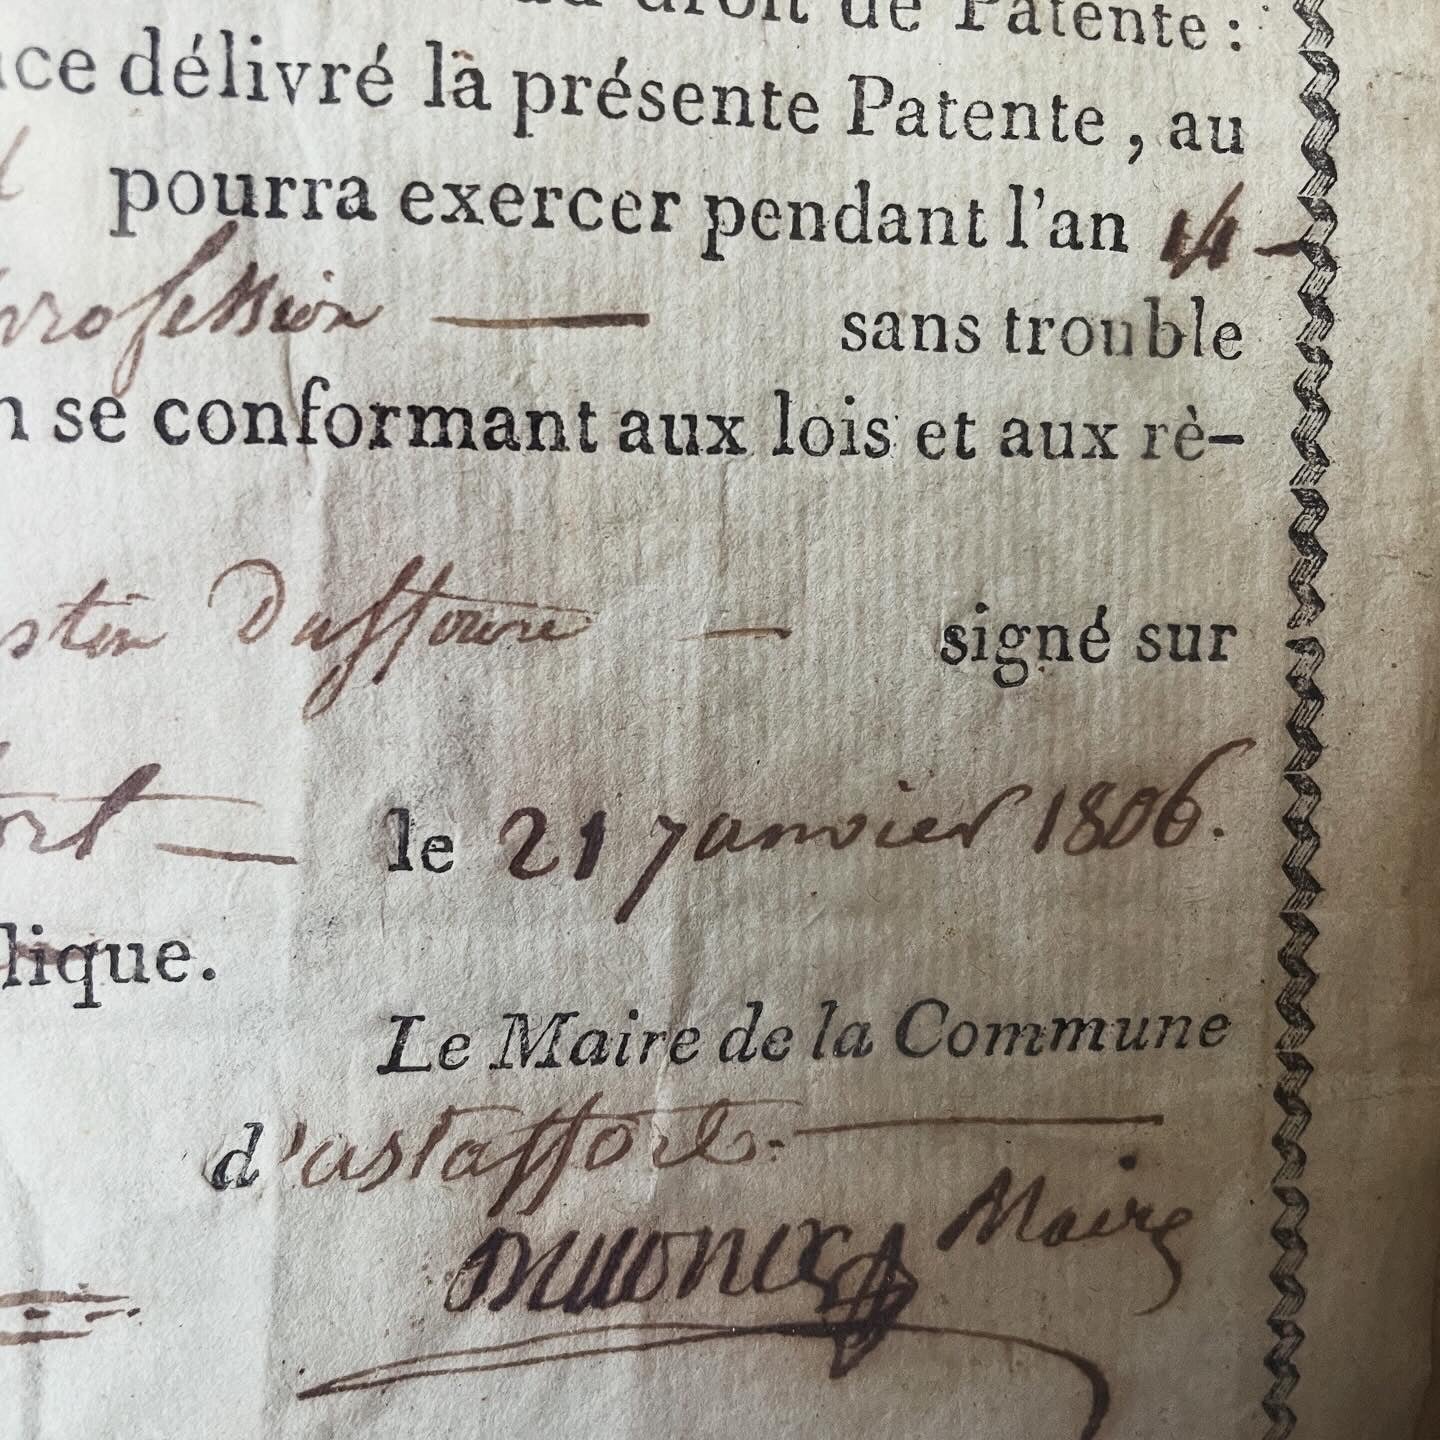 au droit de Patente :
ce délivré la présente Patente, au
pourra exercer pendant l'an 14 -
profession — sans trouble
n se conformant aux lois et aux rè-
stin Duffourc — signé sur
ort — le 21 janvier 1806.
lique.
Le Maire de la Commune
d'astaffort. —
Maire